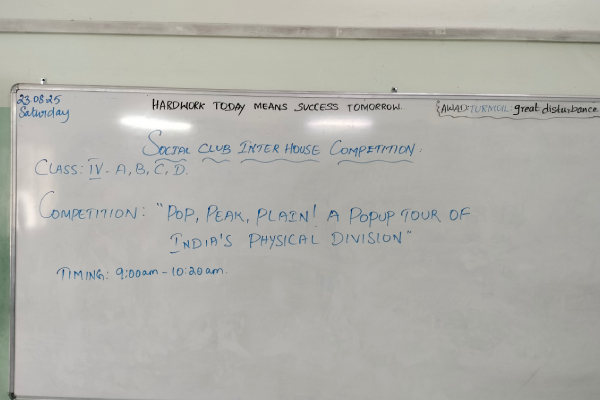 23.08.25
Saturday
HARDWORK TODAY MEANS SUCCESS TOMORROW.
AWAD: TURMOIL: great disturbance
SOCIAL CLUB INTER HOUSE COMPETITION.
CLASS: IV - A, B, C, D.
COMPETITION: "POP, PEAK, PLAIN! A POPUP TOUR OF
INDIA'S PHYSICAL DIVISION"
TIMING: 9:00am - 10:20am.